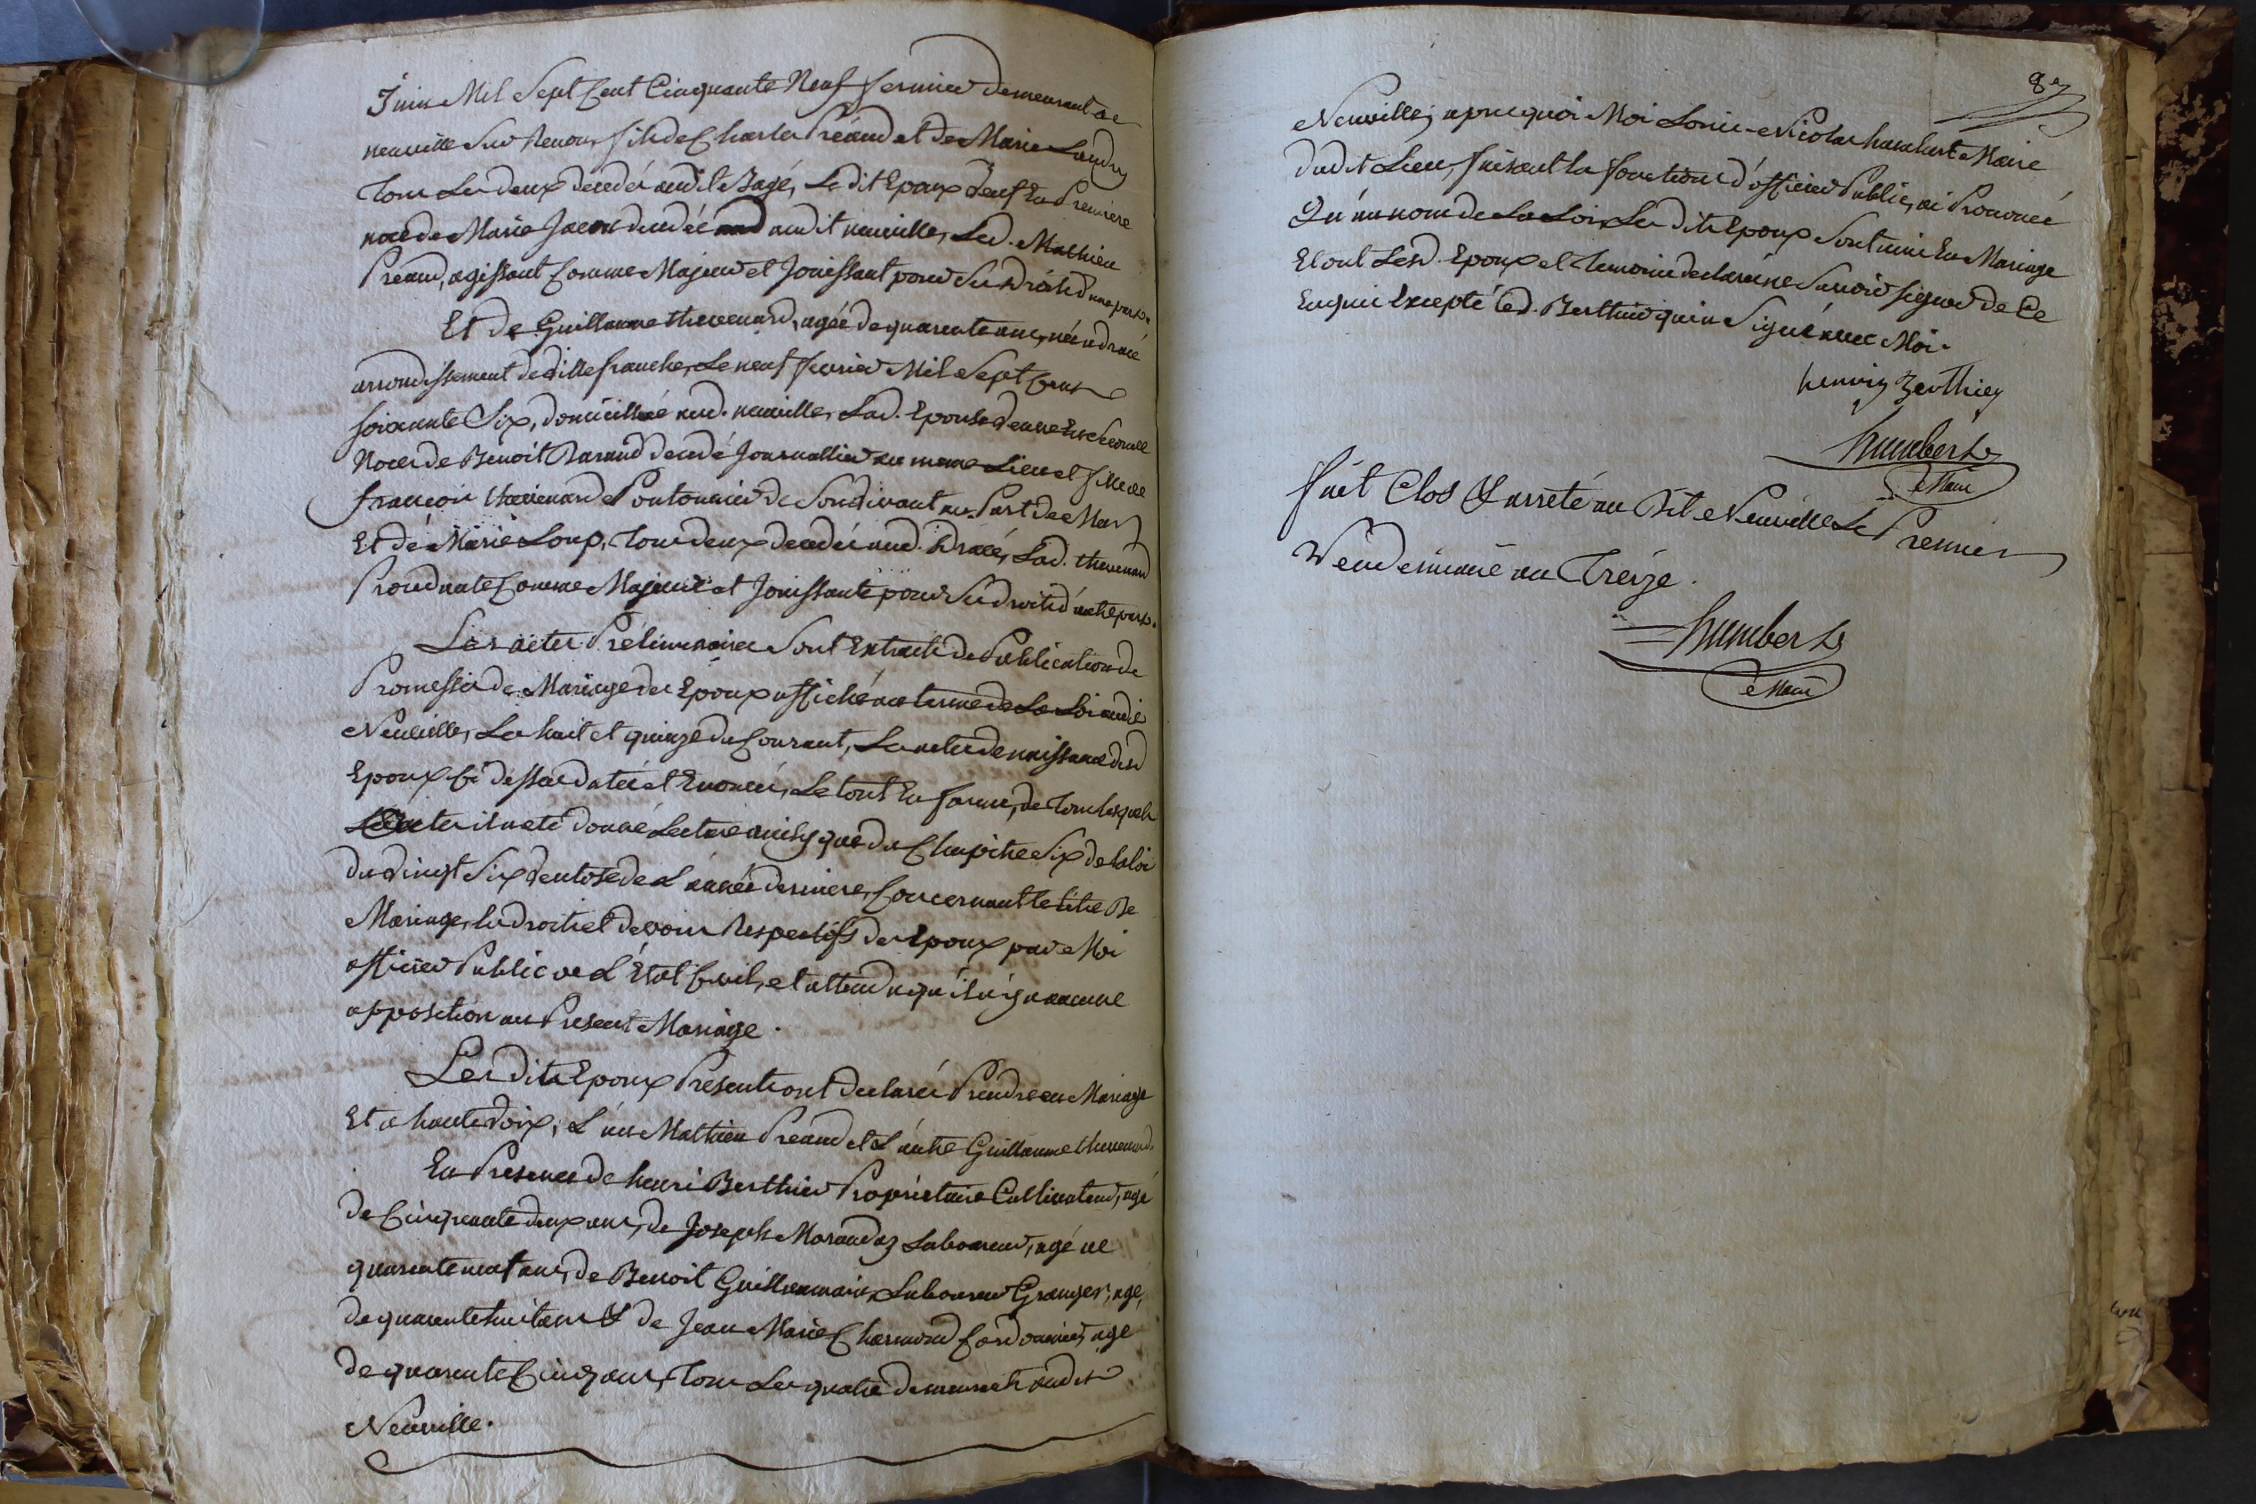 Juin Mil Sept Cent Cinquante Neuf fermier demeurant a
neuville Sur Renon, fils de Charles Préaud et de Marie Landry
Tous Les deux decedés audit Bagé, Le dit Epoux Veuf En Premiere
noce de Marie Jacon decedée audit neuville, Led. Mathieu
Preaud, agissant Comme Majeur et Jouissant pour Ses Droits d'une part.
Et de Guillaume thevenard, agée de quarente ans, née a dracé
arrondissement de Villefranche, Le neuf fevrier Mil Sept Cent
soixante Six, domiciliée aud. neuville, Lad. Epouse Veuve En Seconde
Noces de Benoit Baraud decedé Journallier au meme Lieu et fille de
françois thevenard Pontonnier de Son Vivant au Port de Mas
Et de Marie Loup, Tous deux decedés aud. Dracé, Lad. thevenard
Procedante Comme Majeure et Jouissante pour Ses droits d'autre part.
Les actes Préliminaires Sont Extraits de Publication de
Promesses de Mariage des Epoux affiché au terme de La Loi audit
Neuville, Les huit et quinze du Courant, Les actes de naissance desd
Epoux Ci dessus datés et Enoncés, Le tout En forme, de Tous lesquels
actes il a eté donné Lecture ainsy que du Chapitre Six de la loi
du Vingt Six Ventose de L'année derniere, Concernant le titre De
Mariage, les droits et devoirs Respectifs des Epoux par Moi
officier Public de L'Etat Civil, et attendu qu'il n'y a aucune
opposition au Present Mariage.
Les dits Epoux Presents ont declarés Prendre en Mariage
Et a haute Voix, L'un Mathieu Preaud et L'autre Guillaume thevenard.
En Presence de henri Berthier Propriétaire Cultivateur, agé
de Cinquante deux ans, de Joseph Marandaz Laboureur, agé de
quarente neuf ans, de Benoit Guillermain Laboureur Granger, agé
de quarente huit ans & de Jean Marie Charmond Cordonnier, agé
de quarente Cinq ans, Tous Les quatre demeurants audit
Neuville.
Neuville; apres quoi Moi Louis Nicolas humbert Maire
dudit Lieu, faisant la fonctions d'officier Public, ai Prononcé
Qu'au nom de La Loi, Les dits Epoux Sont unis En Mariage
Et ont Lesd. Epoux et Temoins declarés ne Savoir signer de Ce
Enquis Excepté led. Berthier qui a Signé avec Moi.
henriy Berthiey
humbert
Maire
fait Clos & arreté au dit Neuville Le Premier
Vendemiaire an Treize.
humbert
Maire